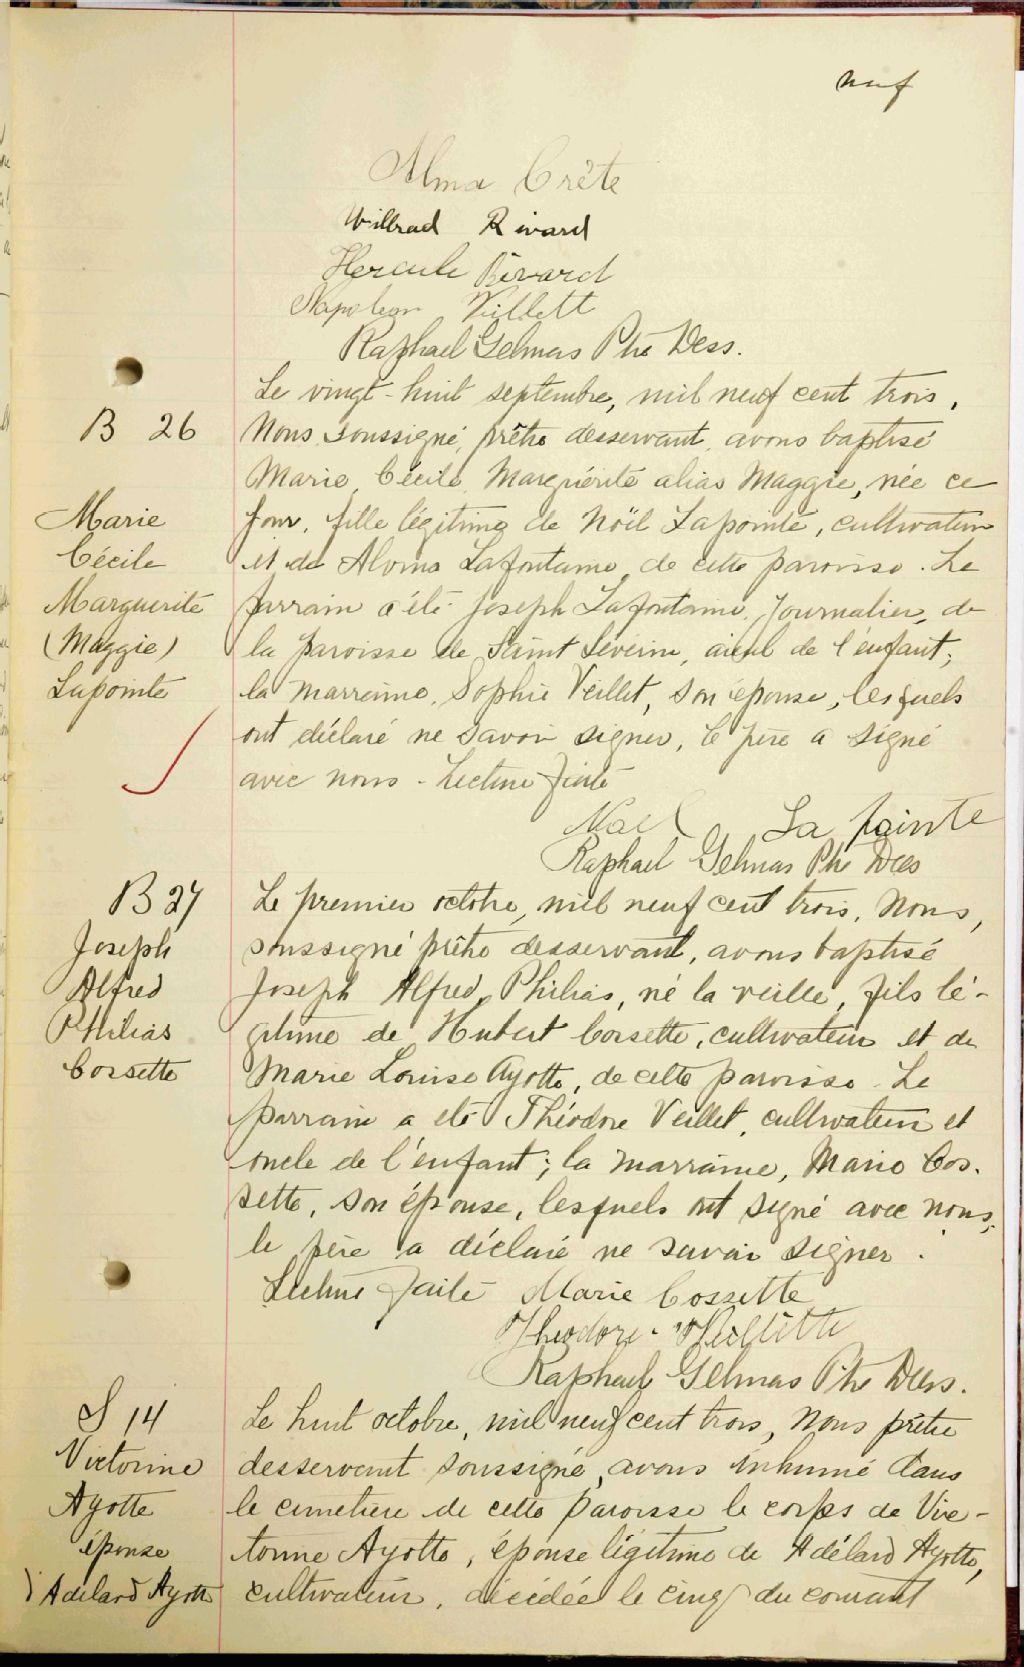 neuf
Alma Crête
Willrad Rivard
Hercule Rivard
Napoleon Villett
Raphael Gelinas Ptre Dess.
Le vingt-huit septembre, mil neuf cent trois,
B 26
Nous soussigné, prêtre desservant, avons baptisé
Marie, Cécile, Marguérite alias Maggie, née ce
Marie
jour, fille légitime de Noël Lapointe, cultivateur
Cécile
et de Alvina Lafontaine, de cette paroisse. Le
Marguerite
parrain a été Joseph Lafontaine, Journalier, de
(Maggie)
la paroisse de Saint Séverin, aïeul de l'enfant;
Lapointe
la marraine, Sophie Veillet, son épouse, lesquels
ont déclaré ne savoir signer, le père a signé
avec nous - Lecture faite
Noel La pointe
Raphael Gelinas Ptre Dess
B 27
Le premier octobre, mil neuf cent trois, Nous,
Joseph
soussigné prêtre desservant, avons baptisé
Alfred
Joseph Alfred Philias, né la veille, fils lé-
Philias
gitime de Hubert Cossette, cultivateur et de
Cossette
Marie Louise Ayotte, de cette paroisse. Le
parrain a été Théodore Veillet, cultivateur et
oncle de l'enfant; la marraine, Marie Cos-
sette, son épouse, lesquels ont signé avec nous;
le père a déclaré ne savoir signer.
Lecture faite Marie Cossette
Theodore Veillette
Raphael Gelinas Ptre Dess.
S 14
Le huit octobre, mil neuf cent trois, Nous prêtre
Victorine
desservant soussigné, avons inhumé dans
Ayotte
le cimetière de cette paroisse le corps de Vic-
épouse
torine Ayotte, épouse légitime de Adélard Ayotte,
Adélard Ayotte
cultivateur, décédée le cinq du courant